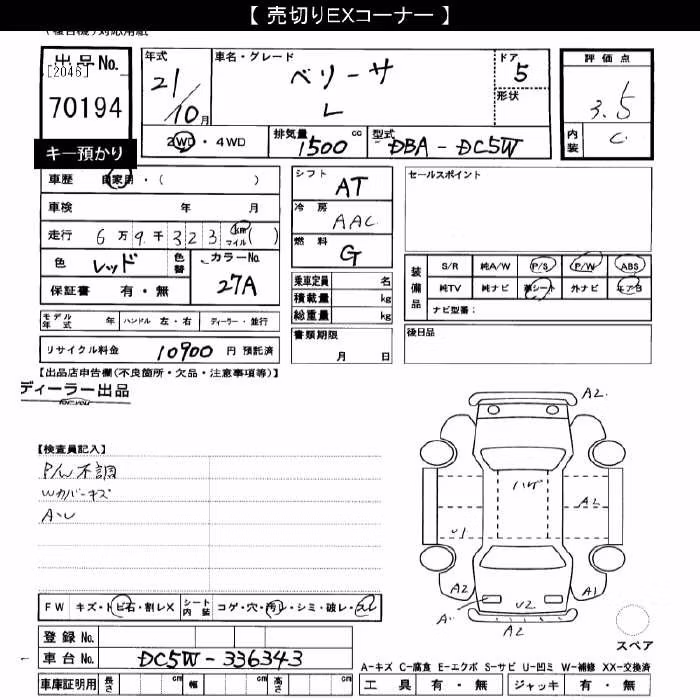 【 売切りEXコーナー 】
出品No.
[2046]
70194
キー預かり
年式 車名・グレード ドア
21/10月 ベリーサ 5
L 形状
2WD・4WD 排気量 1500 cc 型式 DBA-DC5W
評価点
3.5
内装 C
車歴 自家用・( )
車検 年 月
走行 6万9千323 km マイル ( )
色 レッド 色替 カラーNo. 27A
保証書 有・無
モデル年式 年 ハンドル 左・右 ディーラー・並行
リサイクル料金 10900 円 預託済
シフト AT
冷房 AAC
燃料 G
乗車定員 名
積載量 kg
総重量 kg
書類期限
月 日
セールスポイント
装備品 S/R 純A/W P/S P/W ABS
純TV 純ナビ 革シート 外ナビ エアB
ナビ型番:
後日品
【出品店申告欄(不良箇所・欠品・注意事項等)】
ディーラー出品
for you
【検査員記入】
P/W不調
Wカバーキズ
A・U
FW キズ・トビ石・割レX シート内装 コゲ・穴・汚レ・シミ・破レ・スレ
登録No.
車台No. DC5W-336343
車庫証明用 長さ cm 幅 cm 高さ cm
A2
ハゲ
A2
U1
A2
A1
A
U2
A2
スペア
A-キズ C-腐食 E-エクボ S-サビ U-凹ミ W-補修 XX-交換済
工具 有・無 ジャッキ 有・無